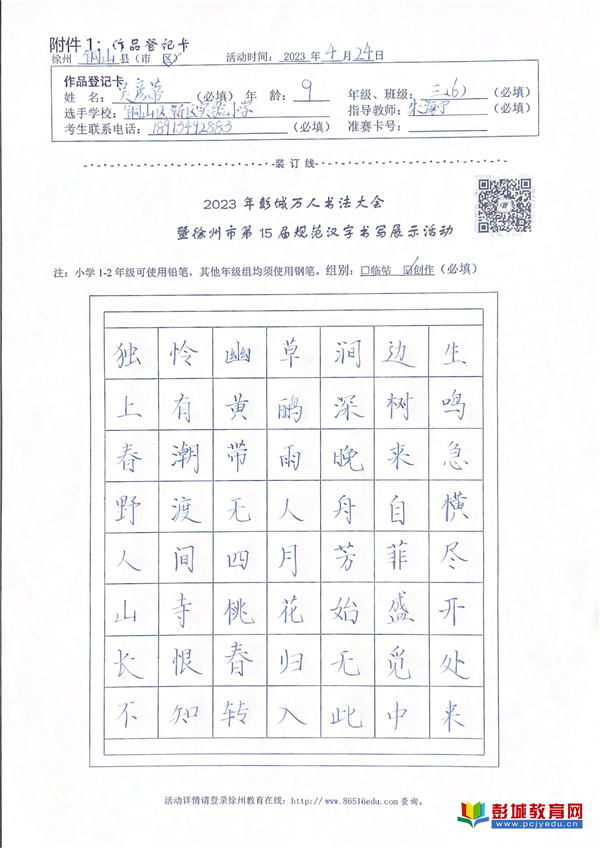 附件1：作品登记卡
徐州 铜山 县（市 区） 活动时间：2023 年 4 月 24 日
作品登记卡
姓 名： （必填） 年 龄：9 年级、班级：三（6）
选手学校：铜山区新区实验小学 （必填） 指导教师： （必填）
考生联系电话：18913492883 （必填） 准赛卡号：
装 订 线
2023 年彭城万人书法大会
暨徐州市第 15 届规范汉字书写展示活动
注：小学 1-2 年级可使用铅笔，其他年级组均须使用钢笔。组别：□临帖 ☑创作（必填）
独怜幽草涧边生
上有黄鹂深树鸣
春潮带雨晚来急
野渡无人舟自横
人间四月芳菲尽
山寺桃花始盛开
长恨春归无觅处
不知转入此中来
活动详情请登录徐州教育在线：http://www.86516edu.com 查询。
彭城教育网
www.pcjyedu.cn